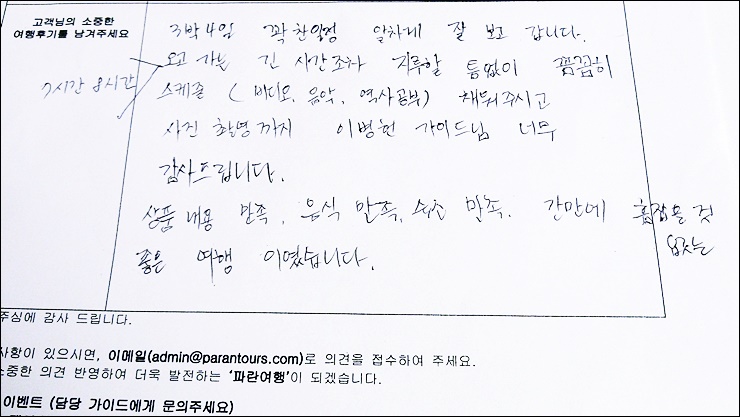 고객님의 소중한
여행후기를 남겨주세요
3박4일 꽉찬일정 알차게 잘 보고 갑니다.
오고 가는 긴 시간조차 지루할 틈없이 꼼꼼히
7시간 8시간
스케쥴 (비디오, 음악, 역사공부) 채워주시고
사진 촬영까지 이병헌 가이드님 너무
감사드립니다.
상품 내용 만족, 음식 만족, 숙소 만족. 간만에 흠잡을 것
없는
좋은 여행 이였습니다.
주심에 감사 드립니다.
사항이 있으시면, 이메일(admin@parantours.com)로 의견을 접수하여 주세요.
소중한 의견 반영하여 더욱 발전하는 '파란여행'이 되겠습니다.
이벤트 (담당 가이드에게 문의주세요)